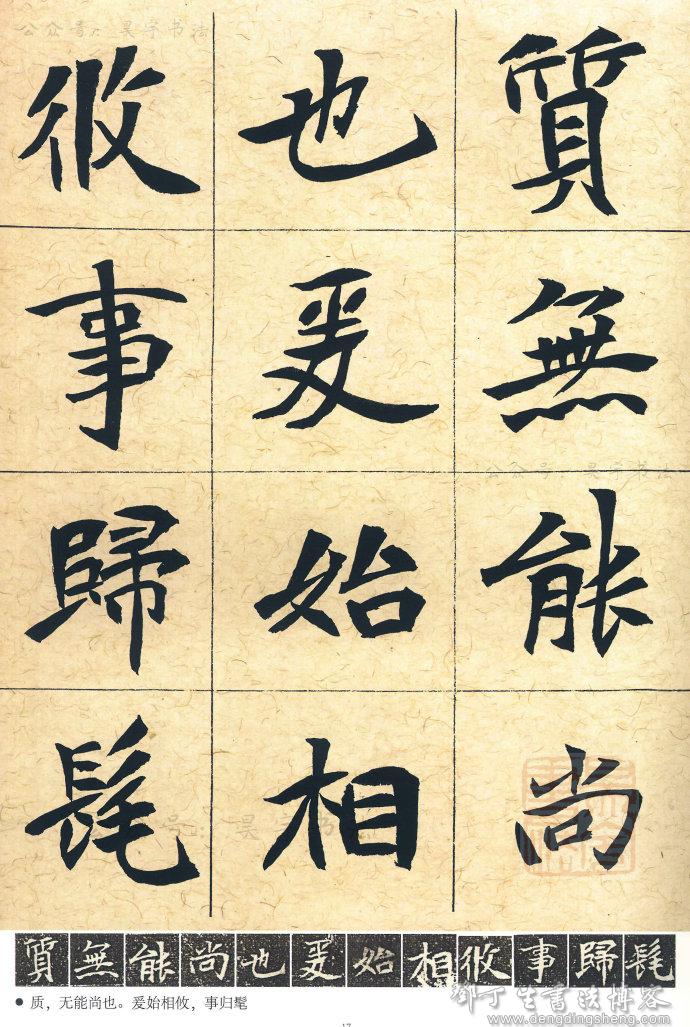 公众号：昊宇书法
質無能尚
也爰始相
攸事歸髦
公众号：昊宇书法
号：昊宇书
質無能尚也爰始相攸事歸髦
● 质，无能尚也。爰始相攸，事归髦
邓丁生书法博客
www.dengdingsheng.com
17